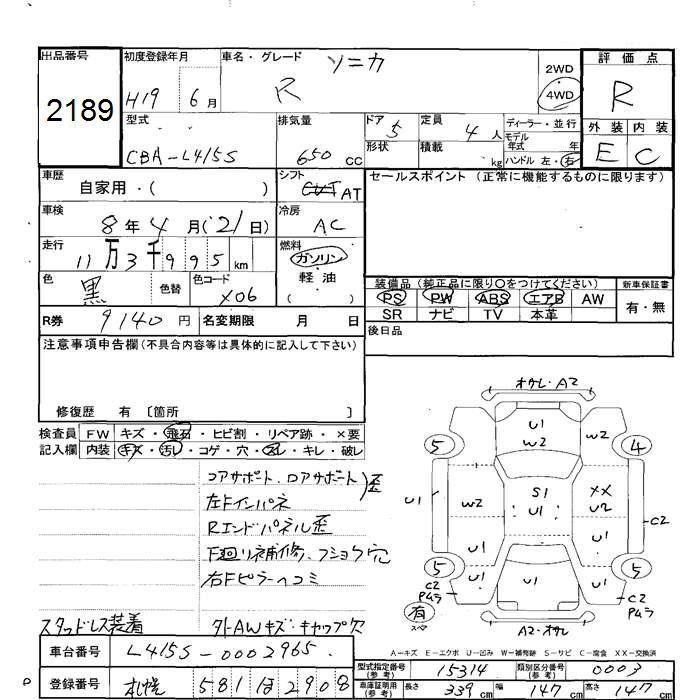 出品番号 2189
初度登録年月 H19 6月
車名・グレード ソニカ R
2WD 4WD
評価点 R
型式 CBA-L415S
排気量 650 cc
ドア 5
形状
定員 4 人
積載 kg
ディーラー・並行
モデル年式 年
ハンドル 左・右
外装 内装
E C
車歴 自家用・( )
シフト AT
セールスポイント(正常に機能するものに限ります)
車検 8年4月(21日)
冷房 AC
走行 11万3千995km
燃料 ガソリン・軽油
色 黒 色替
色コード X06
装備品(純正品に限り○をつけてください) 新車保証書
PS PW ABS エアB AW 有・無
SR ナビ TV 本革
R券 9140円 名変期限 月 日
後日品
注意事項申告欄(不具合内容等は具体的に記入して下さい)
修復歴 有〔箇所 〕
検査員 FW キズ・飛石・ヒビ割・リペア跡・×要
記入欄 内装 キズ・汚レ・コゲ・穴・スレ・キレ・破レ
コアサポート、ロアサポート歪
左Fインパネ
Rエンドパネル歪
F廻リネ補修、フショク穴
右Fピラーヘコミ
スタッドレス装着 タトAWキズ・キャップ欠
オサレ・A2
U1
W2
W2
5
4
U1
W2
S1
U1
XX
W2
C2
U1
U1
5
5
U1
C2
Pムラ
C2
PムラA
有
スペア
A2・オサレ
A-キズ E-エクボ U-凹み W-補修跡 S-サビ C-腐食 XX-交換済
車台番号 L415S-0002965
型式指定番号(参考) 15314 類別区分番号(参考) 0003
登録番号 札幌 581 ほ 2908
車庫証明用(参考) 長さ 339cm 幅 147cm 高さ 147cm